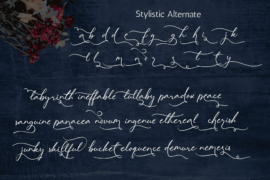 Stylistic Alternate
labyrinth ineffable lullaby paradox peace
sanguine panacea novum ingenue ethereal cherish
junky skillful bucket eloquence demure nemesis